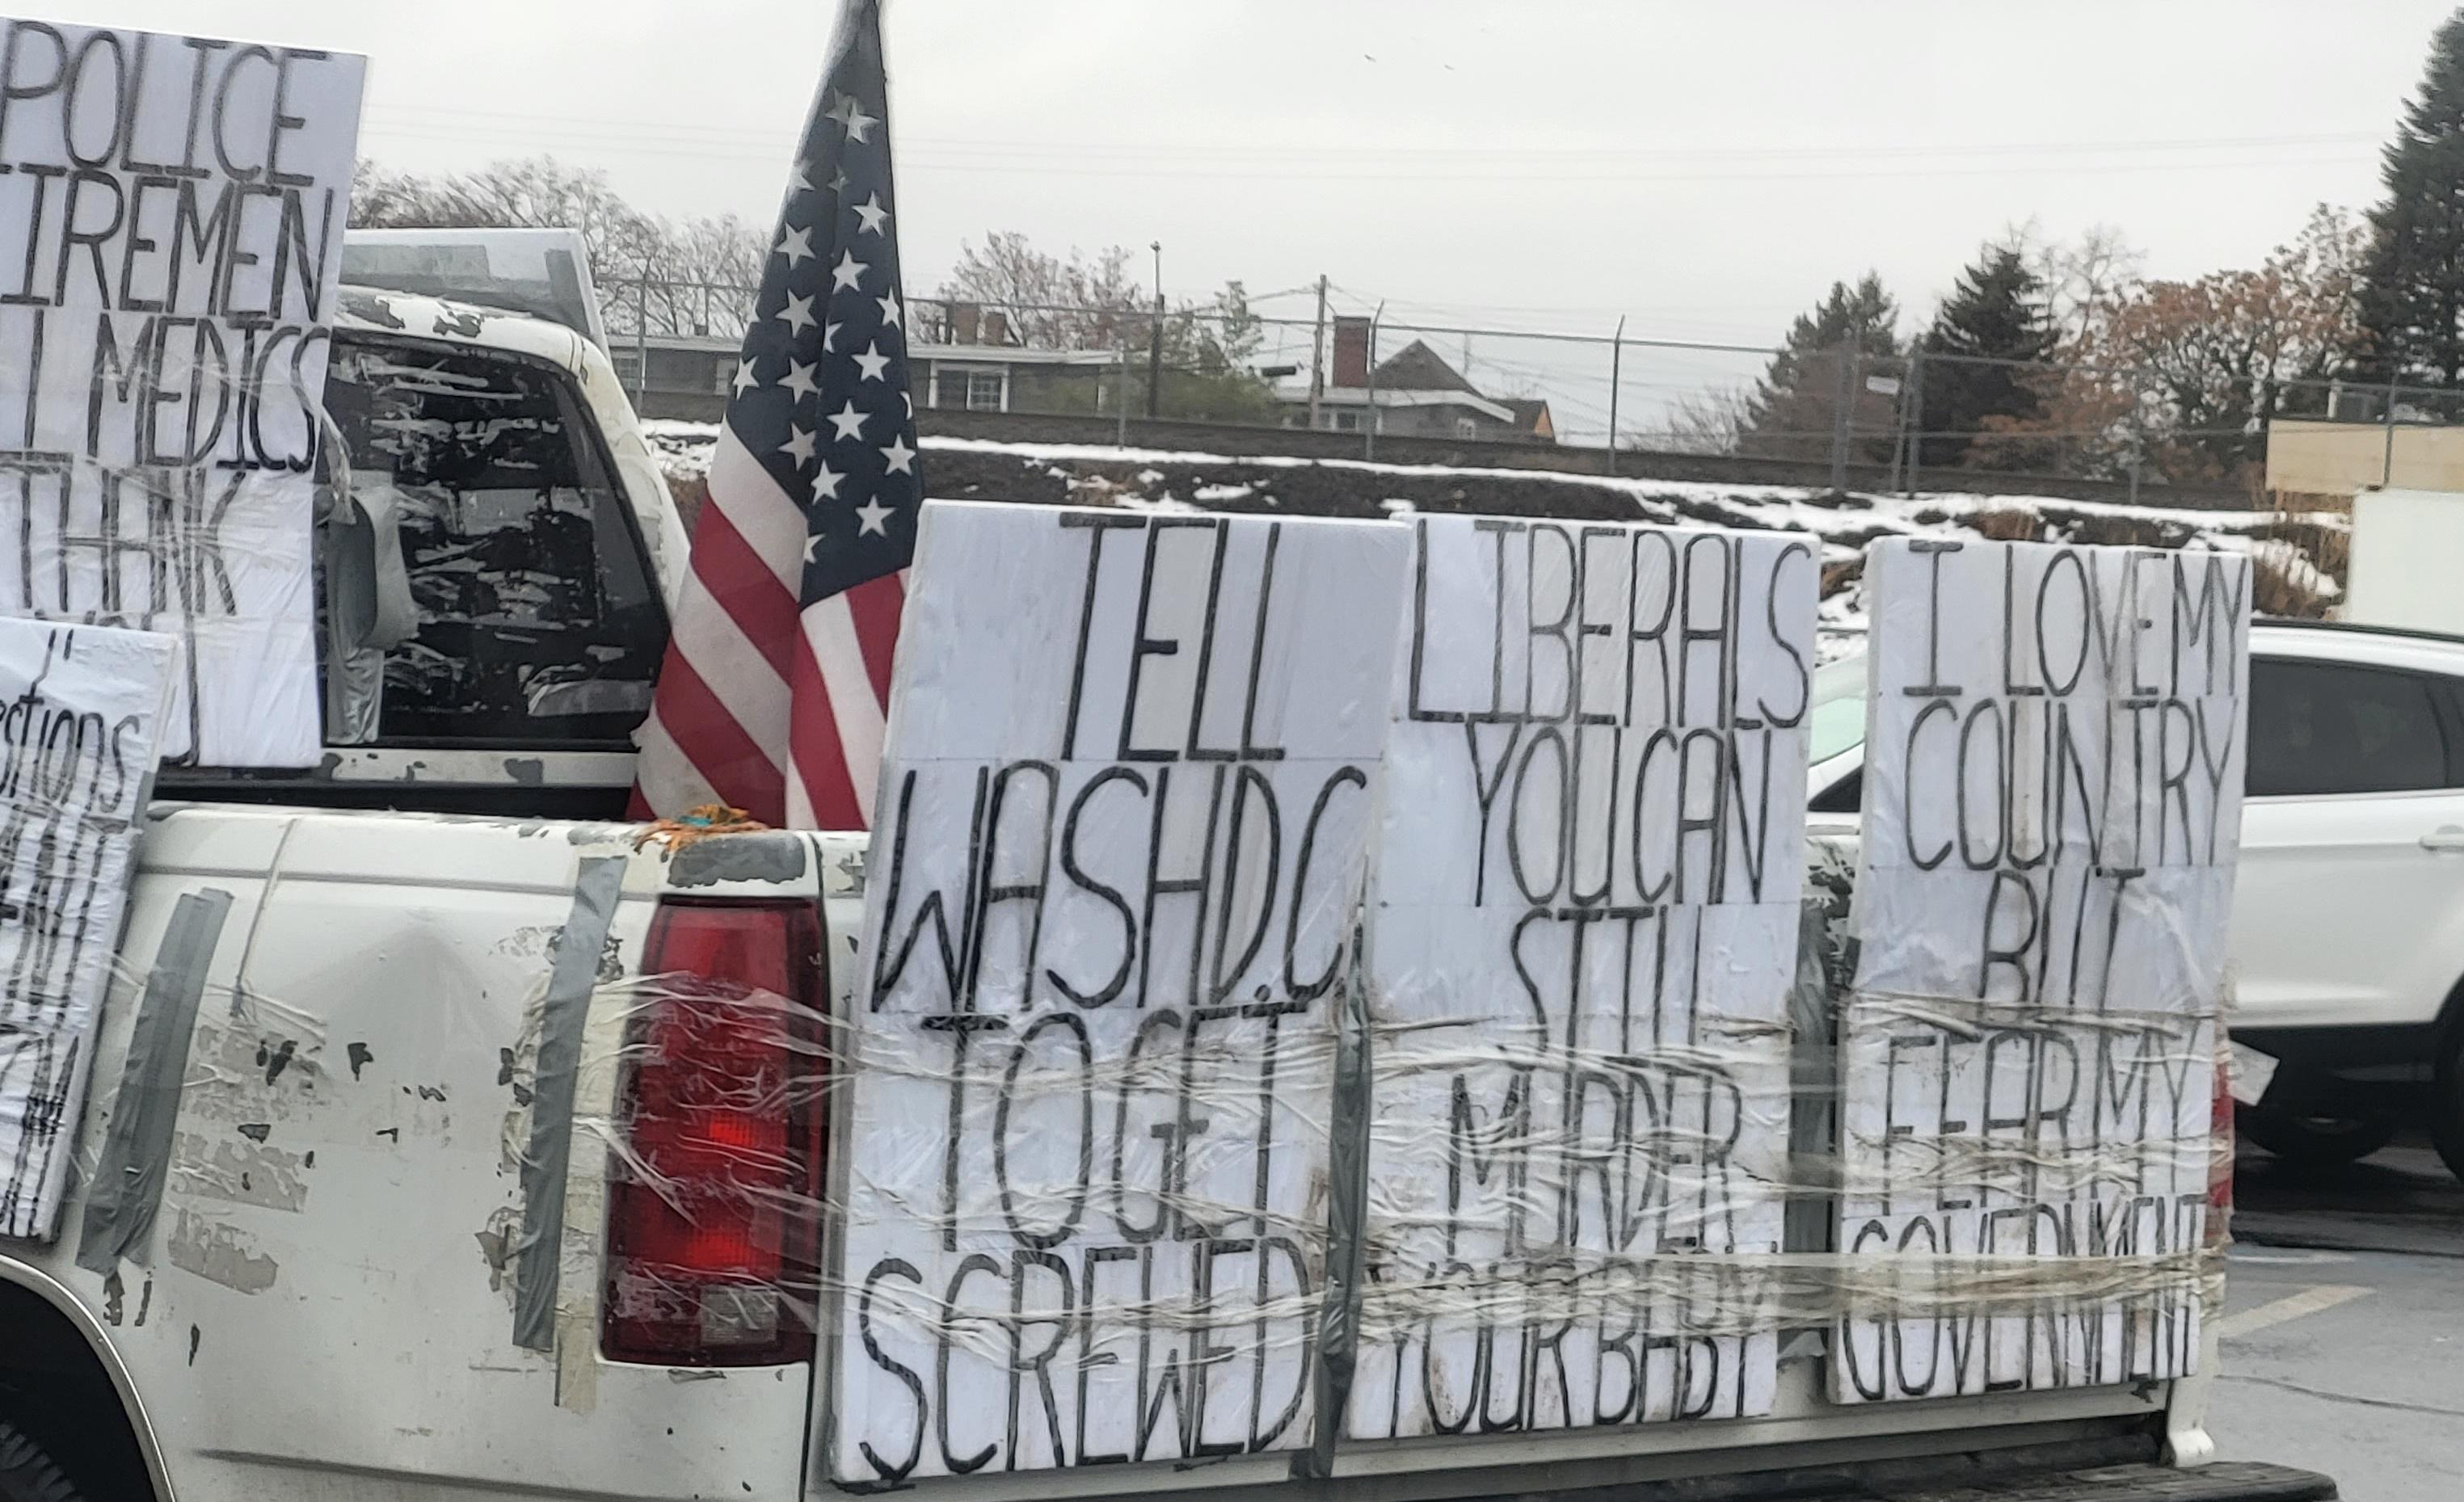 POLICE
IREMEN
MEDICS
THINK
ctions
TELL
WASHD.C
TO GET
SCREWED
LIBERALS
YOU CAN
STILL
MURDER
YOUR BABY
I LOVE MY
COUNTRY
BUT
FEAR MY
GOVERNMENT